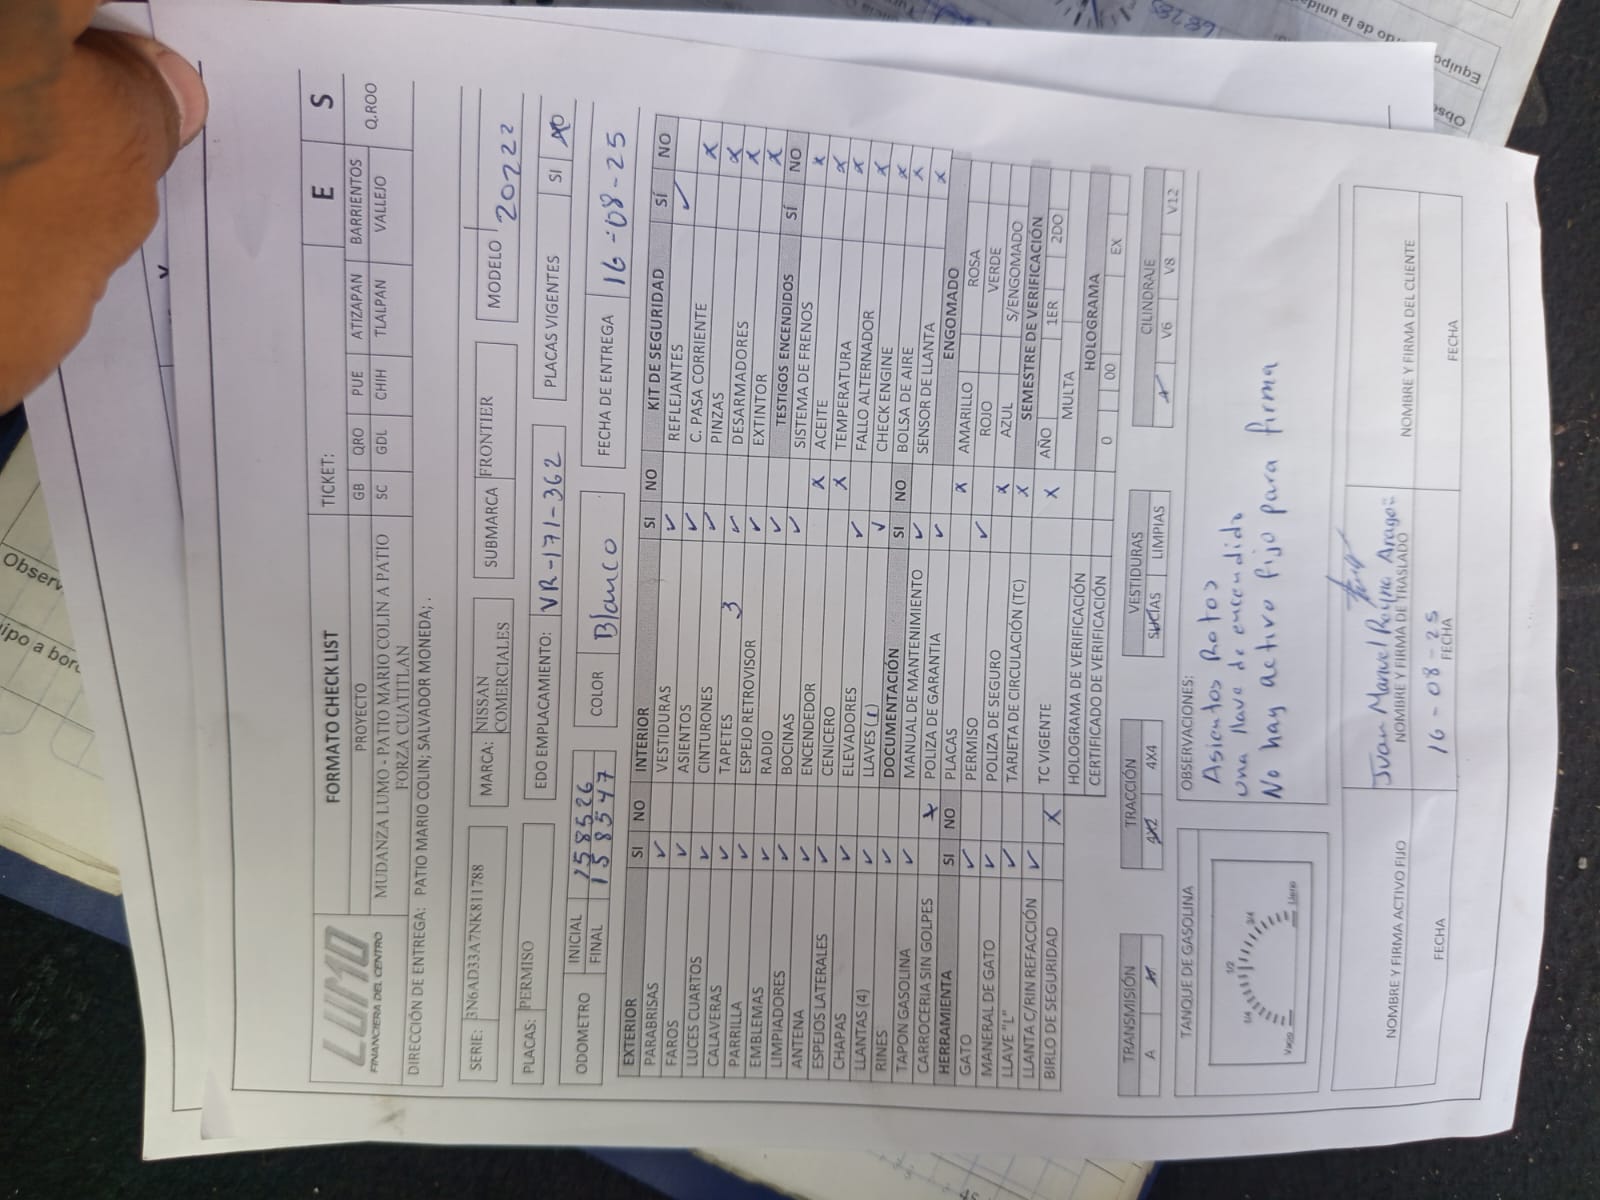 LUMO
FINANCIERA DEL CENTRO
FORMATO CHECK LIST
TICKET:
E S
PROYECTO
GB QRO PUE ATIZAPAN BARRIENTOS Q.ROO
MUDANZA LUMO - PATIO MARIO COLIN A PATIO FORZA CUATITLAN
SC GDL CHIH TLALPAN VALLEJO
DIRECCIÓN DE ENTREGA: PATIO MARIO COLIN; SALVADOR MONEDA; .
SERIE: 3N6AD33A7NK811788 MARCA: NISSAN COMERCIALES SUBMARCA FRONTIER MODELO 20222
PLACAS: PERMISO EDO EMPLACAMIENTO: VR-171-362 PLACAS VIGENTES SI NO
ODOMETRO INICIAL 158526 COLOR Blanco FECHA DE ENTREGA 16-08-25
FINAL 158547
EXTERIOR SI NO
PARABRISAS ✓
FAROS ✓
LUCES CUARTOS ✓
CALAVERAS ✓
PARRILLA ✓
EMBLEMAS ✓
LIMPIADORES ✓
ANTENA ✓
ESPEJOS LATERALES ✓
CHAPAS ✓
LLANTAS (4) ✓
RINES ✓
TAPON GASOLINA ✓
CARROCERIA SIN GOLPES X
HERRAMIENTA SI NO
GATO ✓
MANERAL DE GATO ✓
LLAVE "L" ✓
LLANTA C/RIN REFACCIÓN ✓
BIRLO DE SEGURIDAD X
INTERIOR SI NO
VESTIDURAS ✓
ASIENTOS ✓
CINTURONES ✓
TAPETES 3 ✓
ESPEJO RETROVISOR ✓
RADIO ✓
BOCINAS ✓
ENCENDEDOR X
CENICERO X
ELEVADORES ✓
LLAVES (1) ✓
DOCUMENTACIÓN SI NO
MANUAL DE MANTENIMIENTO ✓
POLIZA DE GARANTIA ✓
PLACAS X
PERMISO ✓
POLIZA DE SEGURO X
TARJETA DE CIRCULACIÓN (TC) X
TC VIGENTE X
HOLOGRAMA DE VERIFICACIÓN
CERTIFICADO DE VERIFICACIÓN
KIT DE SEGURIDAD SÍ NO
REFLEJANTES ✓
C. PASA CORRIENTE X
PINZAS X
DESARMADORES X
EXTINTOR X
TESTIGOS ENCENDIDOS SÍ NO
SISTEMA DE FRENOS X
ACEITE X
TEMPERATURA X
FALLO ALTERNADOR X
CHECK ENGINE X
BOLSA DE AIRE X
SENSOR DE LLANTA X
ENGOMADO
AMARILLO ROSA
ROJO VERDE
AZUL S/ENGOMADO
SEMESTRE DE VERIFICACIÓN
AÑO 1ER 2DO
MULTA
HOLOGRAMA
0 00 EX
TRANSMISIÓN TRACCIÓN VESTIDURAS CILINDRAJE
A M 4X2 4X4 SUCIAS LIMPIAS X V6 V8 V12
TANQUE DE GASOLINA
Vacio 1/4 1/2 3/4 Lleno
OBSERVACIONES:
Asientos Rotos
una llave de encendido
No hay activo fijo para firma
Juan Manuel Reyna Aragon
NOMBRE Y FIRMA ACTIVO FIJO NOMBRE Y FIRMA DE TRASLADO NOMBRE Y FIRMA DEL CLIENTE
16-08-25
FECHA FECHA FECHA